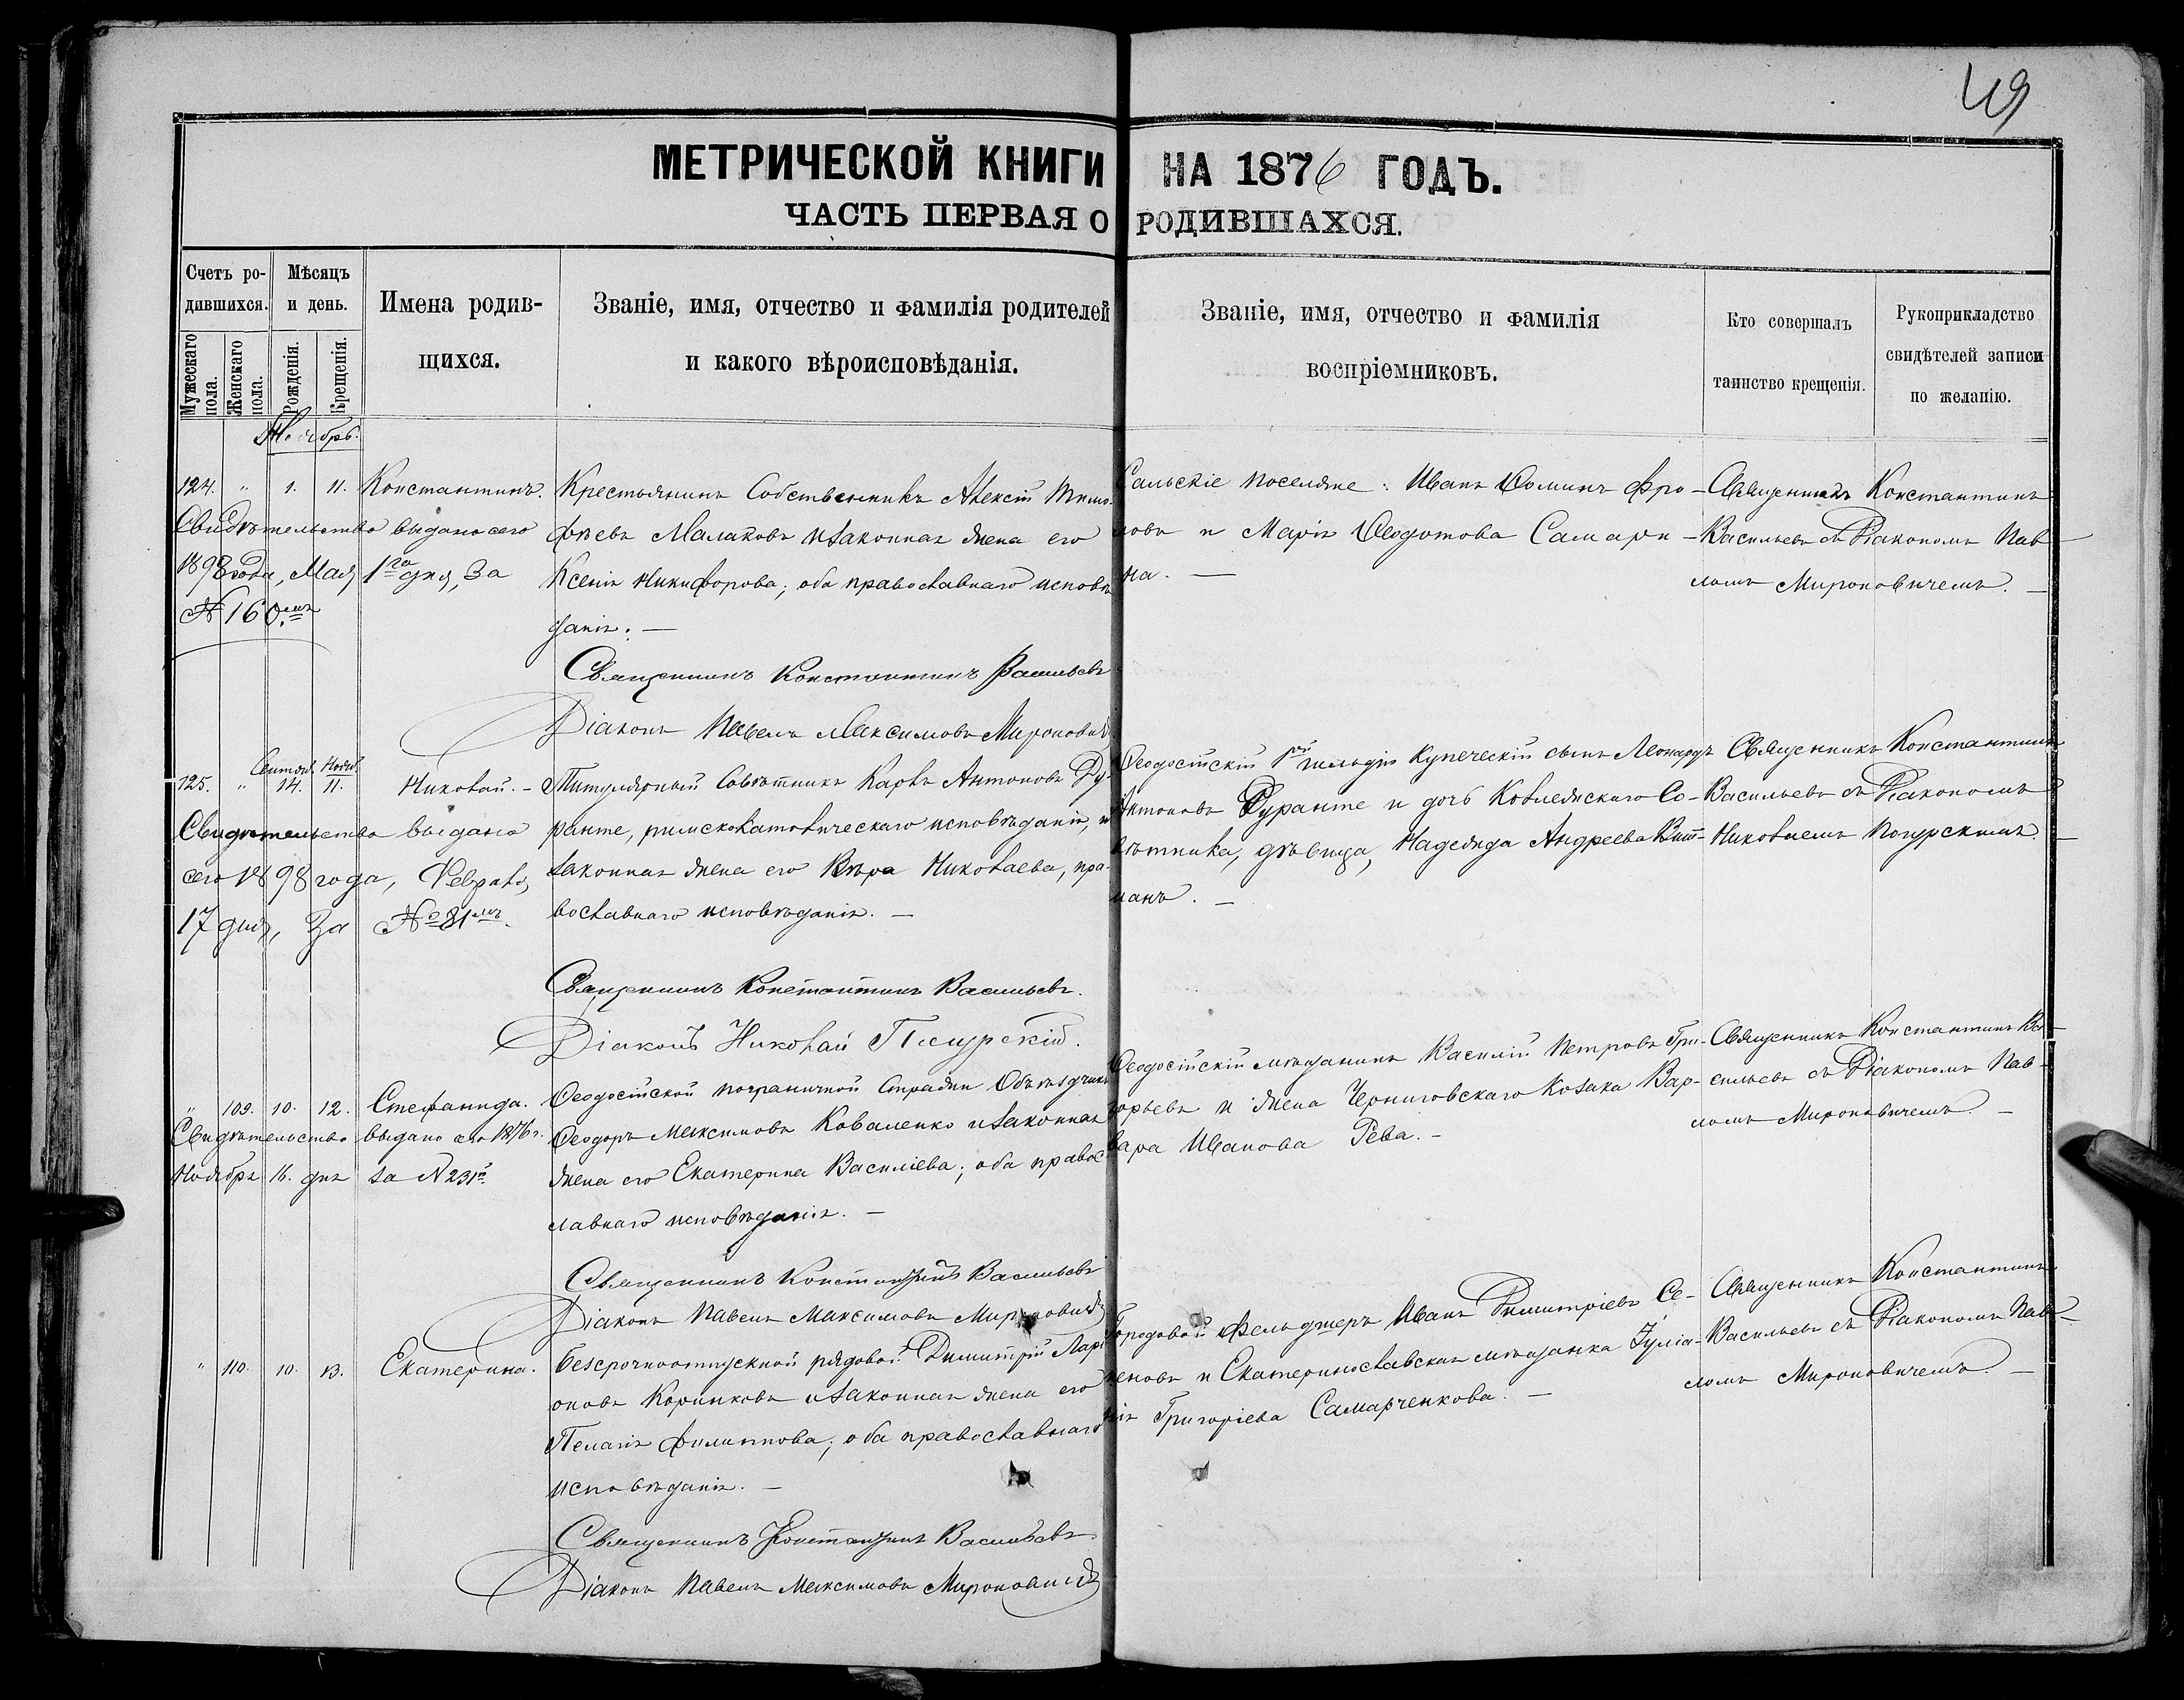 49
МЕТРИЧЕСКОЙ КНИГИ НА 1876 ГОДЪ.
ЧАСТЬ ПЕРВАЯ О РОДИВШАХСЯ.
Счетъ ро-
дившихся.
Мужескаго пола.
Женскаго пола.
Мѣсяцъ
и день.
Рожденія.
Крещенія.
Имена родив-
щихся.
Званіе, имя, отчество и фамилія родителей
и какого вѣроисповѣданія.
Званіе, имя, отчество и фамилія
воспріемниковъ.
Кто совершалъ
таинство крещенія.
Рукоприкладство
свидѣтелей записи
по желанію.
Ноябрь.
124. " 1. 11. Константинъ.
Свидѣтельство выдано сего
1898 года, Мая 1го дня, За
№ 160.мъ
Крестьянинъ Собственникъ Алексѣй Тимо-
фѣевъ Малаховъ и законная жена его
Ксенія Никифорова; оба православнаго исповѣ
данія. —
Священникъ Константинъ Васильевъ
Діаконъ Павелъ Максимовъ Мироновичъ
Сальскіе поселяне: Иванъ Ѳоминъ Фро-
ловъ и Марія Ѳеодотова Самари-
на. —
Священникъ Константинъ
Васильевъ съ Діакономъ Пав-
ломъ Мироновичемъ. —
Сентяб. Нояб.
125. " 14. 11. Николай. —
Свидѣтельство выдано
сего 1898 года, Февраля
17 дня, За № 81мъ.
Титулярный Совѣтникъ Карлъ Антоновъ Ду-
ранте, римскокатолическаго исповѣданія, и
законная жена его Вѣра Николаева, пра-
вославнаго исповѣданія. —
Священникъ Константинъ Васильевъ.
Діаконъ Николай Погурскій.
Ѳеодосійскій 1й гильдіи Купеческій сынъ Леонардъ
Антоновъ Дуранте и дочь Коллежскаго Со-
вѣтника, дѣвица, Надежда Андреева
манъ. —
Священникъ Константинъ
Васильевъ съ Діакономъ
Николаемъ Погурскимъ. —
" 109. 10. 12. Стефанида.
Свидѣтельство выдано сего 1876 г.
Ноября 16. дня за № 231мъ
Ѳеодосійской пограничной Стражи Объѣздчикъ
Ѳеодоръ Максимовъ Коваленко и законная
жена его Екатерина Василіева; оба правос-
лавнаго исповѣданія. —
Священникъ Константинъ Васильевъ
Діаконъ Павелъ Максимовъ Мироновичъ
Ѳеодосійскій мѣщанинъ Василій Петровъ Гри-
горьевъ и жена Черниговскаго Козака Вар-
вара Иванова Рева. —
Священникъ Константинъ Ва-
сильевъ съ Діакономъ Пав-
ломъ Мироновичемъ. —
" 110. 10. 13. Екатерина.
Безсрочноотпускной рядовой Димитрій Лари
оновъ Корниковъ и законная жена его
Пелагія Филиппова; оба православнаго
исповѣданія. —
Священникъ Константинъ Васильевъ.
Діаконъ Павелъ Максимовъ Мироновичъ
Городовой Фельдшеръ Иванъ Димитріевъ Се-
меновъ и Екатеринославская мѣщанка Іулiа-
нія Григоріева Самарченкова. —
Священникъ Константинъ
Васильевъ съ Діакономъ Пав-
ломъ Мироновичемъ. —